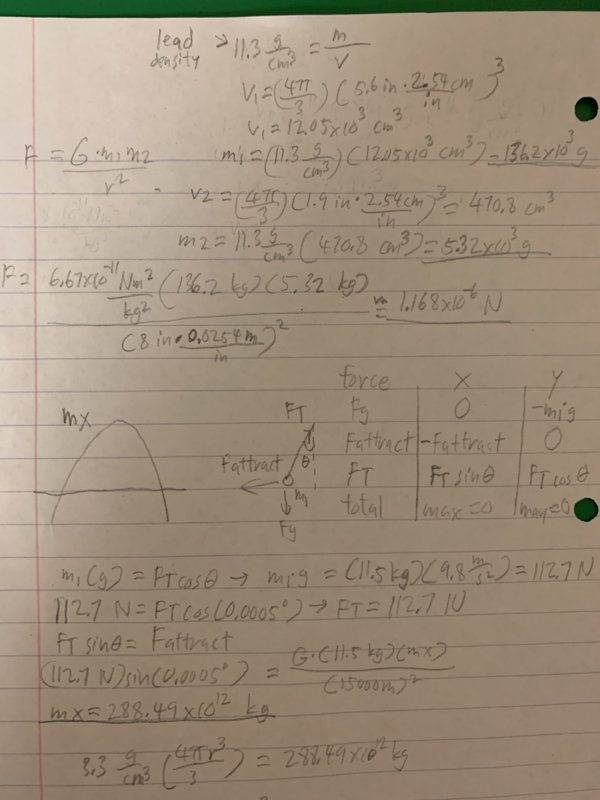 lead density > 11.3 g/cm³ = m/V
V₁ = (4π/3) (5.6 in · 2.54 cm/in)³
V₁ = 12.05x10³ cm³
F = G·m₁m₂/r²
m₁ = (11.3 g/cm³) (12.05x10³ cm³) = 136.2x10³ g
V₂ = (4π/3) (1.9 in · 2.54cm/in)³ = 470.8 cm³
m₂ = 11.3 g/cm³ (470.8 cm³) = 5.32x10³ g
F = 6.67x10⁻¹¹ Nm²/kg² (136.2 kg) (5.32 kg) / (8 in · 0.0254 m/in)² = 1.168x10⁻⁶ N
force X Y
Fg 0 -m₁g
Fattract -Fattract 0
FT FT sinθ FT cosθ
total max=0 may=0
mx
FT
θ
Fattract
m₁
Fg
m₁(g) = FT cosθ → m₁g = (11.5 kg) (9.8 m/s²) = 112.7 N
112.7 N = FT cos(0.0005°) → FT = 112.7 N
FT sinθ = Fattract
(112.7 N) sin(0.0005°) = G·(11.5 kg)(mx) / (15000m)²
mx = 288.49x10¹² kg
3.3 g/cm³ (4πr³/3) = 288.49x10¹² kg